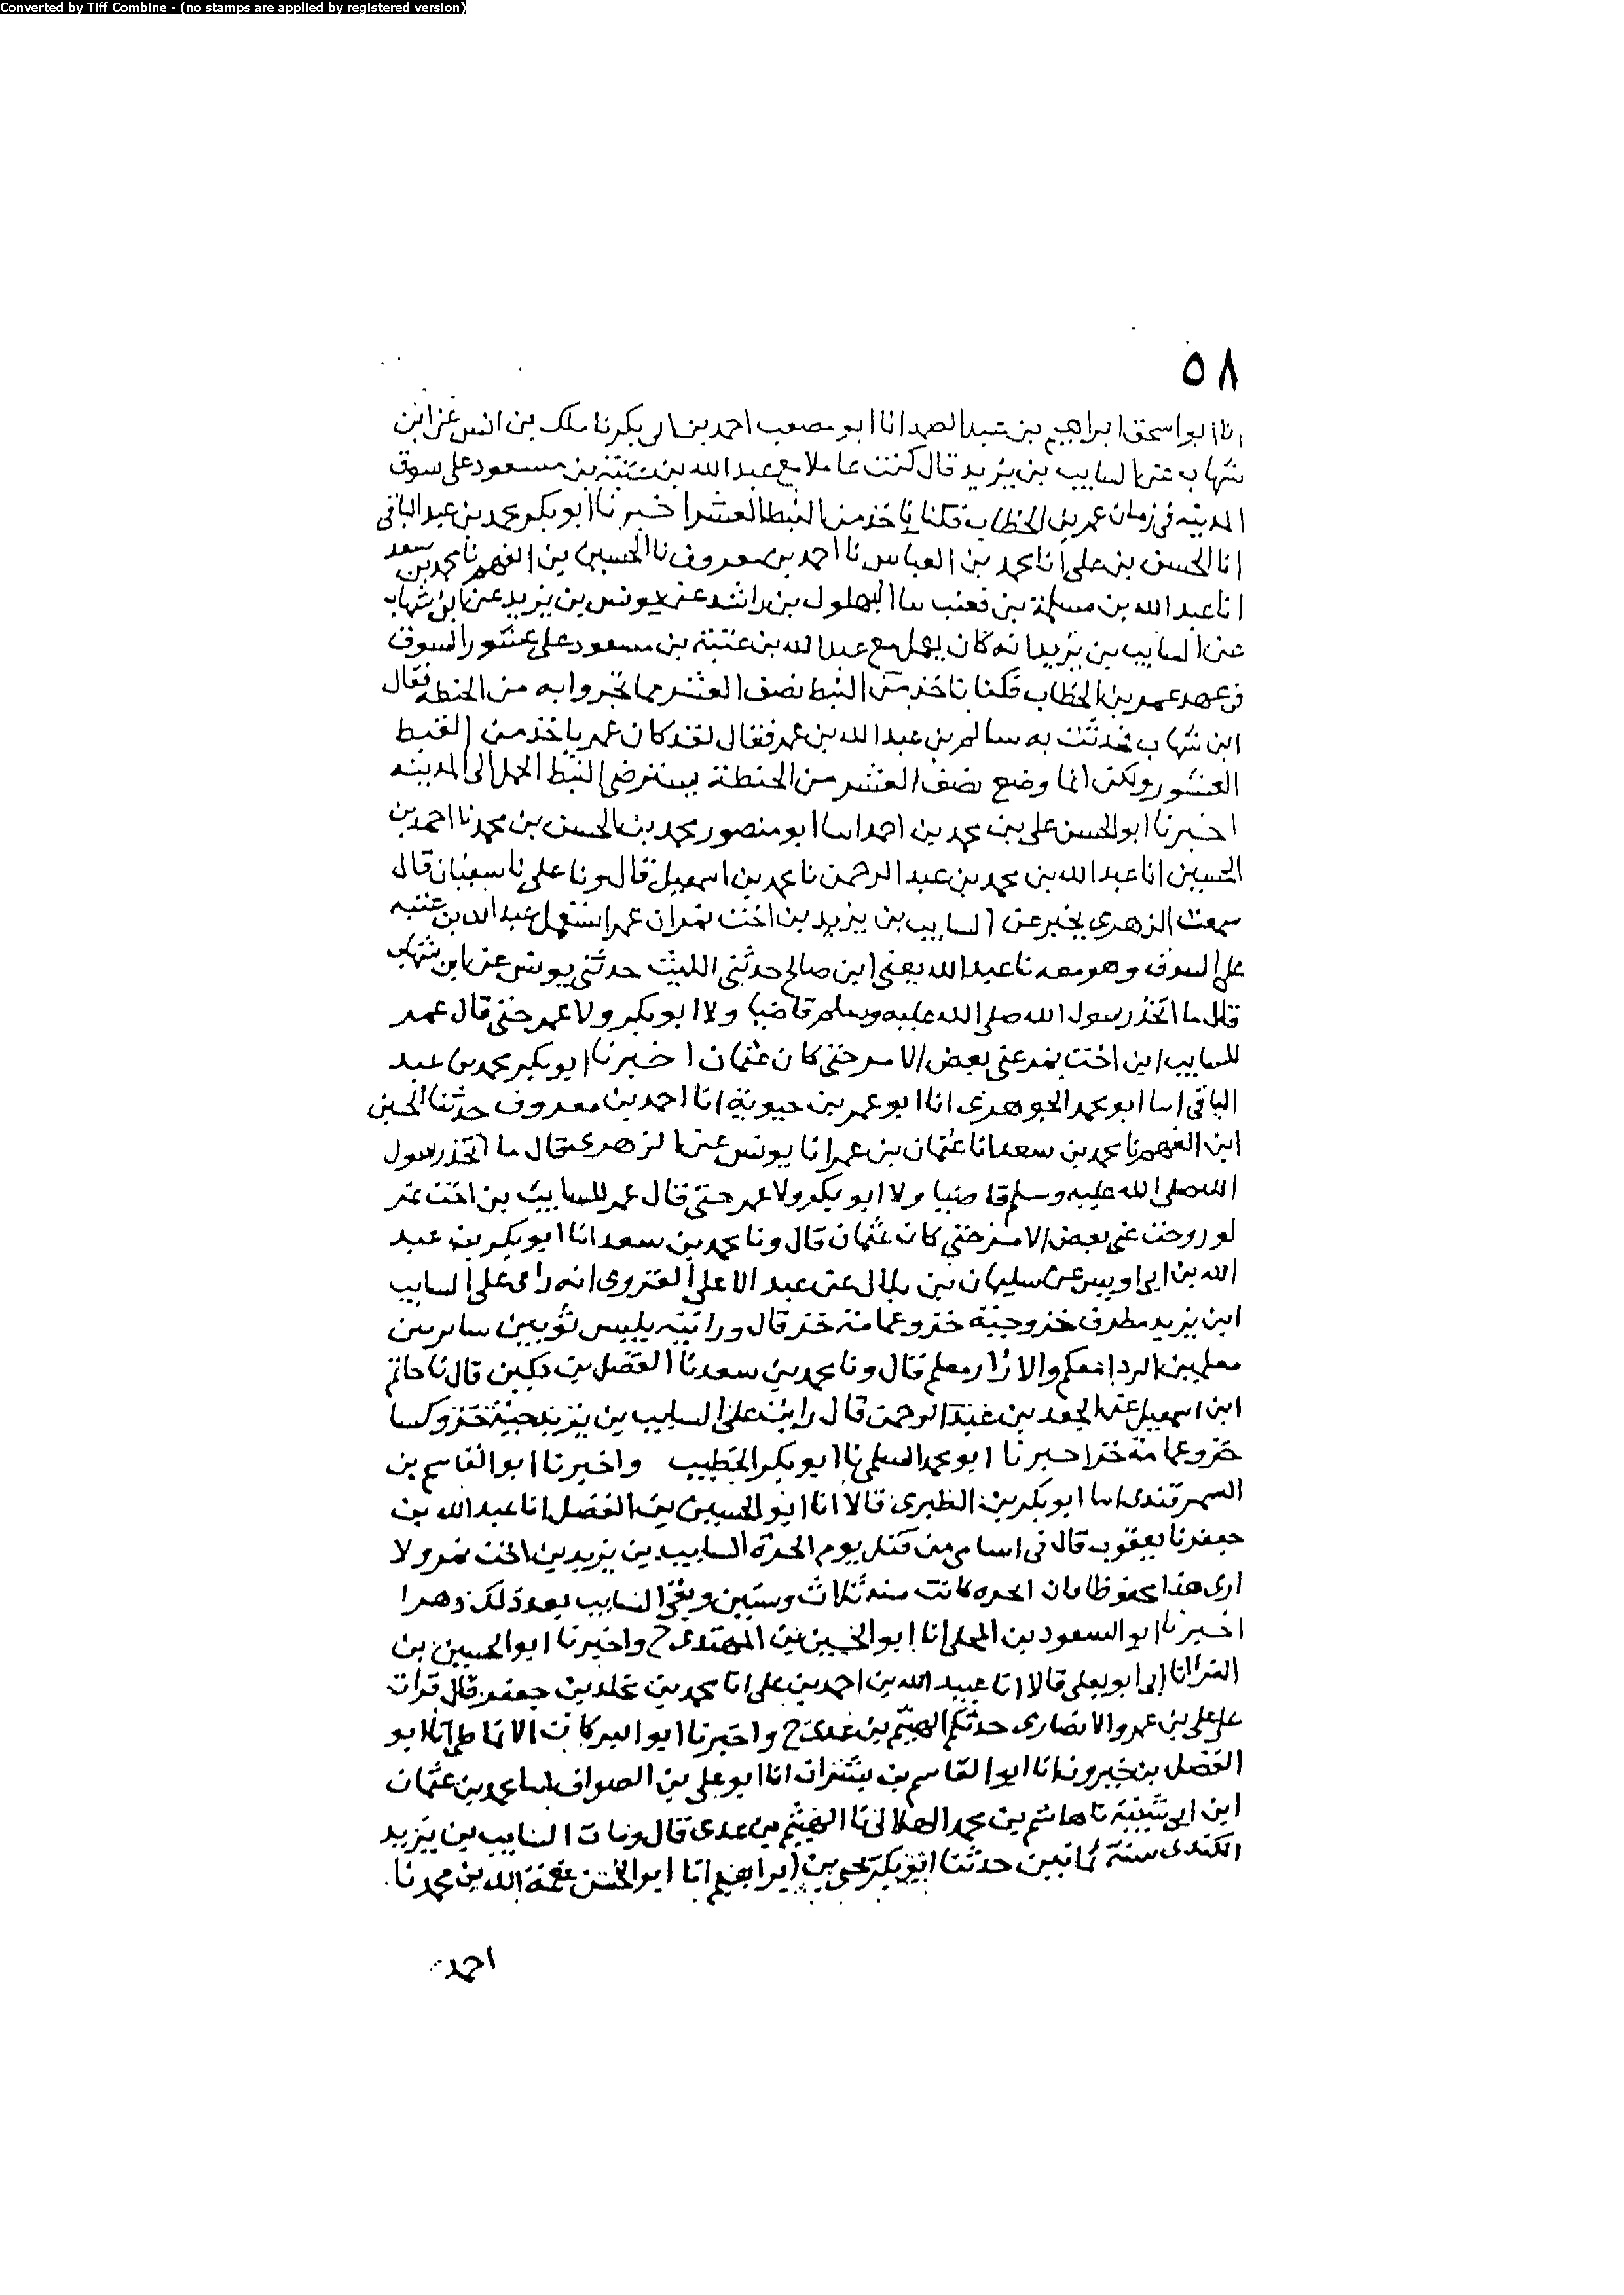 Converted by Tiff Combine - (no stamps are applied by registered version)
٥٨
انا ابو اسحق ابراهيم بن عبد الصمد انا ابو مصعب احمد بن ابى بكر نا ملك بن انس عن ابن
شهاب عن السايب بن يزيد قال كنت عاملا مع عبد الله بن عتبة بن مسعود على سوق
المدينه فى زمان عمر بن الخطاب فكنا ناخذ من النبط العشر اخبرنا ابو بكر محمد بن عبد الباقى
انا الحسن بن على انا محمد بن العباس نا احمد بن معروف نا الحسين بن الفهم نا محمد بن سعد
انا عبد الله بن مسلمة بن قعنب سا البهلول بن راشد عن يونس بن يزيد عن ابن شهاب
عن السايب بن يزيد انه كان يعمل مع عبد الله بن عتبة بن مسعود على عشور السوق
فى عهد عمر بن الخطاب فكنا ناخذ من النبط نصف العشر مما تجروا به من الحنطة فقال
ابن شهاب فحدثت به سالم بن عبد الله بن عمر فقال لقد كان عمر ياخذ من القبط
العشور ولكن انما وضع نصف العشر من الحنطة يسترضى النبط الحمل الى المدينه
اخبرنا ابو الحسن على بن محمد بن احمد اسا ابو منصور محمد بن الحسن بن محمد نا احمد بن
الحسين انا عبد الله بن محمد بن عبد الرحمن نا محمد بن اسمعيل قال ونا على نا سفيان قال
سمعت الزهرى يخبر عن السايب بن يزيد بن اخت نمر ان عمر استعمل عبد الله بن عتبه
على السوق وهو معه نا عبد الله يعنى ابن صالح حدثنى الليث حدثنى يونس عن ابن شهاب
قال ما اتخذ رسول الله صلى الله عليه وسلم قاضيا ولا ابو بكر ولا عمر حتى قال عمر
للسايب ابن اخت نمر عنى بعض الامر حتى كان عثمان اخبرنا ابو بكر محمد بن عبد
الباقى اسا ابو محمد الجوهرى انا ابو عمر بن حيوية انا احمد بن معروف حدثنا الحسين
ابن الفهم نا محمد بن سعد انا عثمان بن عمر انا يونس عن الزهرى قال ما اتخذ رسول
الله صلى الله عليه وسلم قاضيا ولا ابو بكر ولا عمر حتى قال عمر للسايب بن اخت نمر
لو روحت عنى بعض الامر حتى كان عثمان قال ونا محمد بن سعد انا ابو بكر بن عبد
الله بن ابى اويس عن سليمان بن بلال عن عبد الاعلى الفروى انه راى على السايب
ابن يزيد مطرف خز وجبة خز وعمامة خز قال ورايته يلبس ثوبين سابريين
معلمين الرداء معلم والازار معلم قال ونا محمد بن سعد نا الفضل بن دكين قال نا حاتم
ابن اسمعيل عن الجعد بن عبد الرحمن قال رايت على السايب بن يزيد جبة خز وكسا
خز وعمامة خز اخبرنا ابو محمد السلمى نا ابو بكر الخطيب واخبرنا ابو القاسم بن
السمرقندى اسا ابو بكر بن الطبرى قالا انا ابو الحسين بن الفضل انا عبد الله بن
جعفر نا يعقوب قال فى اسامى من قتل يوم الحرة السايب بن يزيد بن اخت نمر ولا
ارى هذا محفوظا فان الحره كانت سنة ثلاث وستين وبقى السايب بعد ذلك دهرا
اخبرنا ابو السعود بن المجلى انا ابو الحسين بن المهتدى ح واخبرنا ابو الحسين بن
الفرا انا ابى ابو يعلى قالا انا عبيد الله بن احمد بن على انا محمد بن مخلد بن جعفر قال قرات
على على بن عمرو الانصارى حدثكم الهيثم بن عدى ح واخبرنا ابو البركات الانماطى انا ابو
الفضل بن خيرون انا ابو القاسم بن بشران انا ابو على بن الصواف اسا محمد بن عثمان
ابن ابى شيبة نا هاشم بن محمد الهلالى نا الهيثم بن عدى قال ومات السايب بن يزيد
الكندى سنة ثمانين حدثنا ابو بكر يحيى بن ابراهيم انا ابو الحسن نعمة الله بن محمد نا
احمد